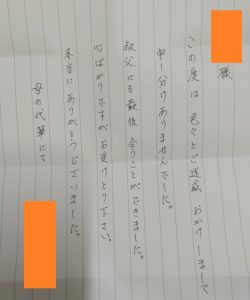 様
この度は 色々とご迷惑 おかけしまして
申し分けありませんでした。
叔父にも最後 会うことができました。
心ばかりですがお受けとり下さい。
本当にありがとうございました。
母の代筆にて